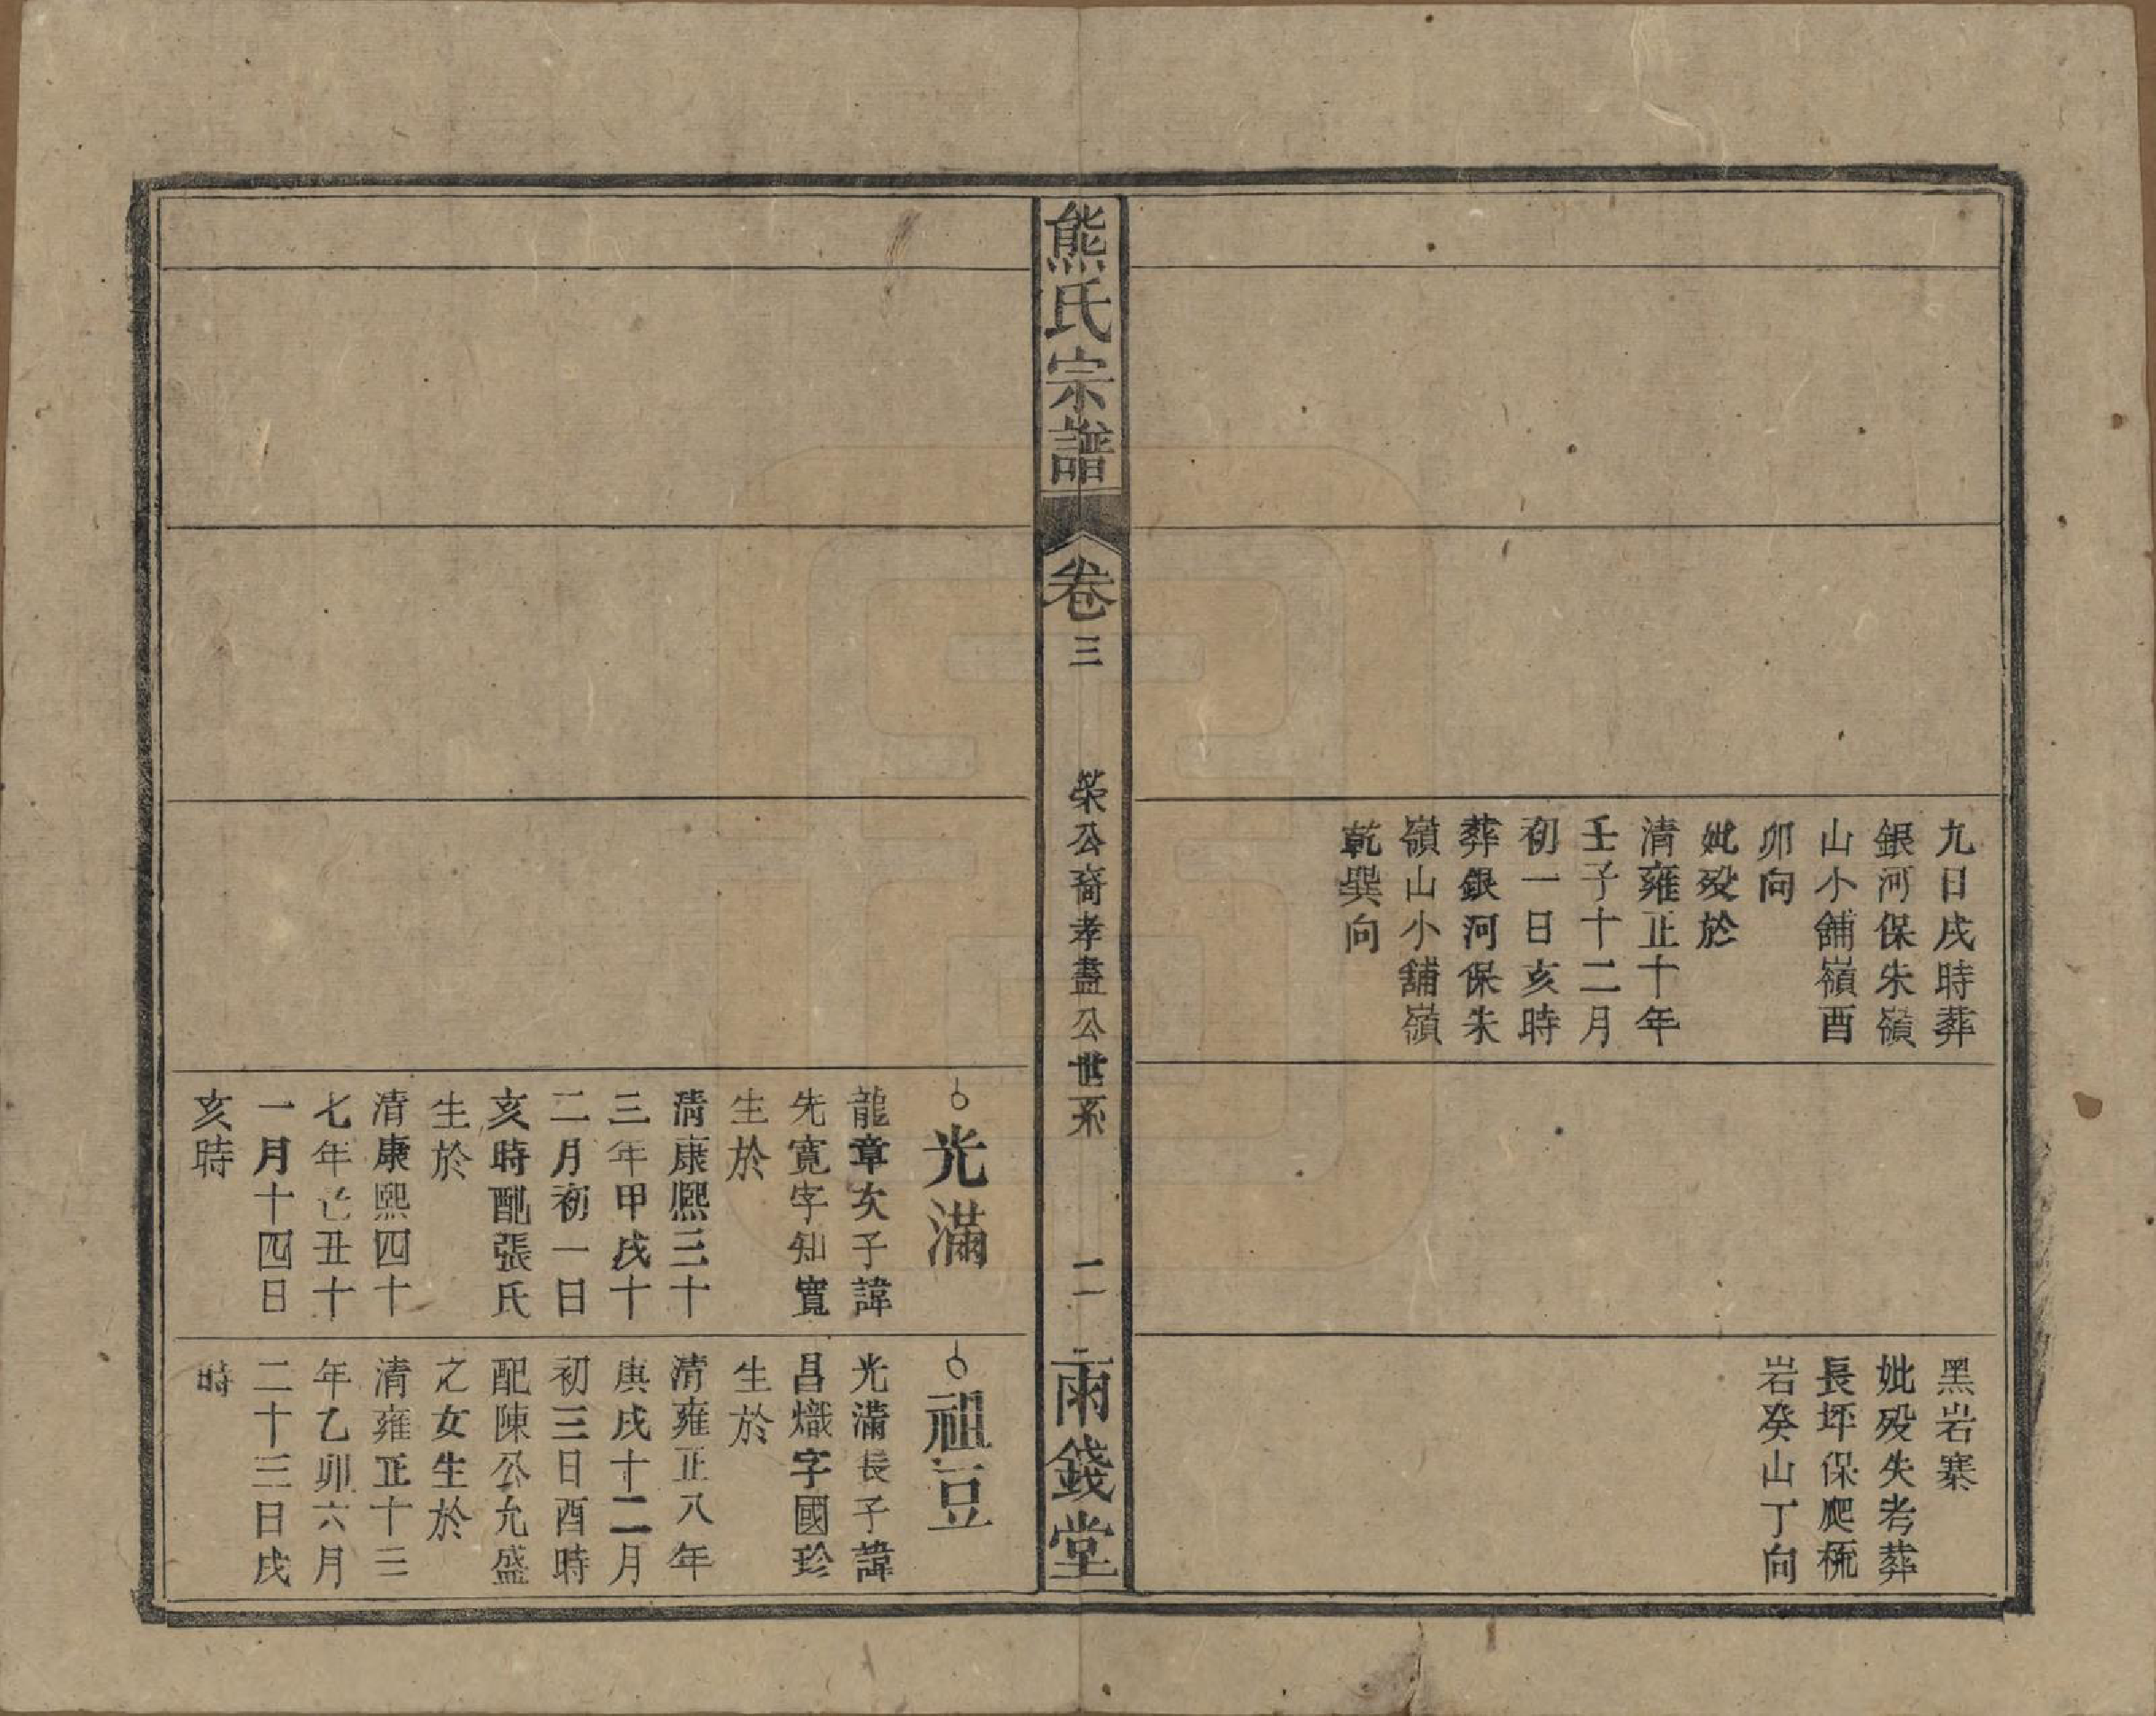 九日戌時葬
銀河保朱嶺
山小舖嶺酉
卯向
妣殁於
清雍正十年
壬子十二月
初一日亥時
葬銀河保朱
嶺山小舖嶺
乾巽向
黑岩寨
妣殁失考葬
長坪保爬梳
岩癸山丁向
熊氏宗譜
卷三
榮公裔孝盡公世系
二
雨錢堂
光滿
龍章次子諱
先寛字知寬
生於
清康熙三十
三年甲戌十
二月初一日
亥時配張氏
生於
清康熙四十
七年己丑十
一月十四日
亥時
祖豆
光滿長子諱
昌熾字國珍
生於
清雍正八年
庚戌十二月
初三日酉時
配陳公允盛
之女生於
清雍正十三
年乙卯六月
二十三日戌
時